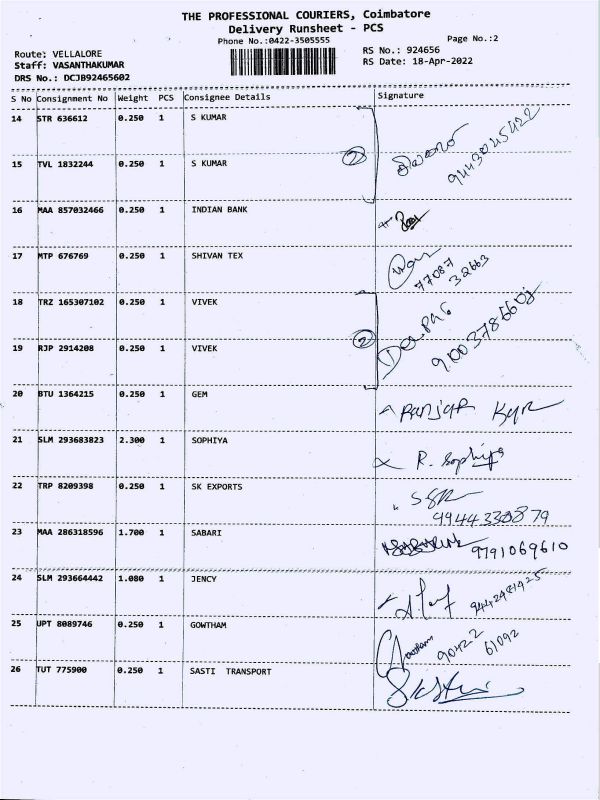 THE PROFESSIONAL COURIERS, Coimbatore
Delivery Runsheet - PCS
Phone No.:0422-3505555
Page No.:2
Route: VELLALORE
RS No.: 924656
Staff: VASANTHAKUMAR
RS Date: 18-Apr-2022
DRS No.: DCJB92465602
S No Consignment No Weight PCS Consignee Details Signature
14 STR 636612 0.250 1 S KUMAR
2 9443045422
15 TVL 1832244 0.250 1 S KUMAR
16 MAA 857032466 0.250 1 INDIAN BANK
17 MTP 676769 0.250 1 SHIVAN TEX
77087
32663
18 TRZ 165307102 0.250 1 VIVEK
2
19 RJP 2914208 0.250 1 VIVEK
20 BTU 1364215 0.250 1 GEM Ranjar
21 SLM 293683823 2.300 1 SOPHIYA R. Sophiya
22 TRP 8209398 0.250 1 SK EXPORTS
9944330879
23 MAA 286318596 1.700 1 SABARI 9791069610
24 SLM 293664442 1.080 1 JENCY
25 UPT 8089746 0.250 1 GOWTHAM Gowtham 90422
61092
26 TUT 775900 0.250 1 SASTI TRANSPORT